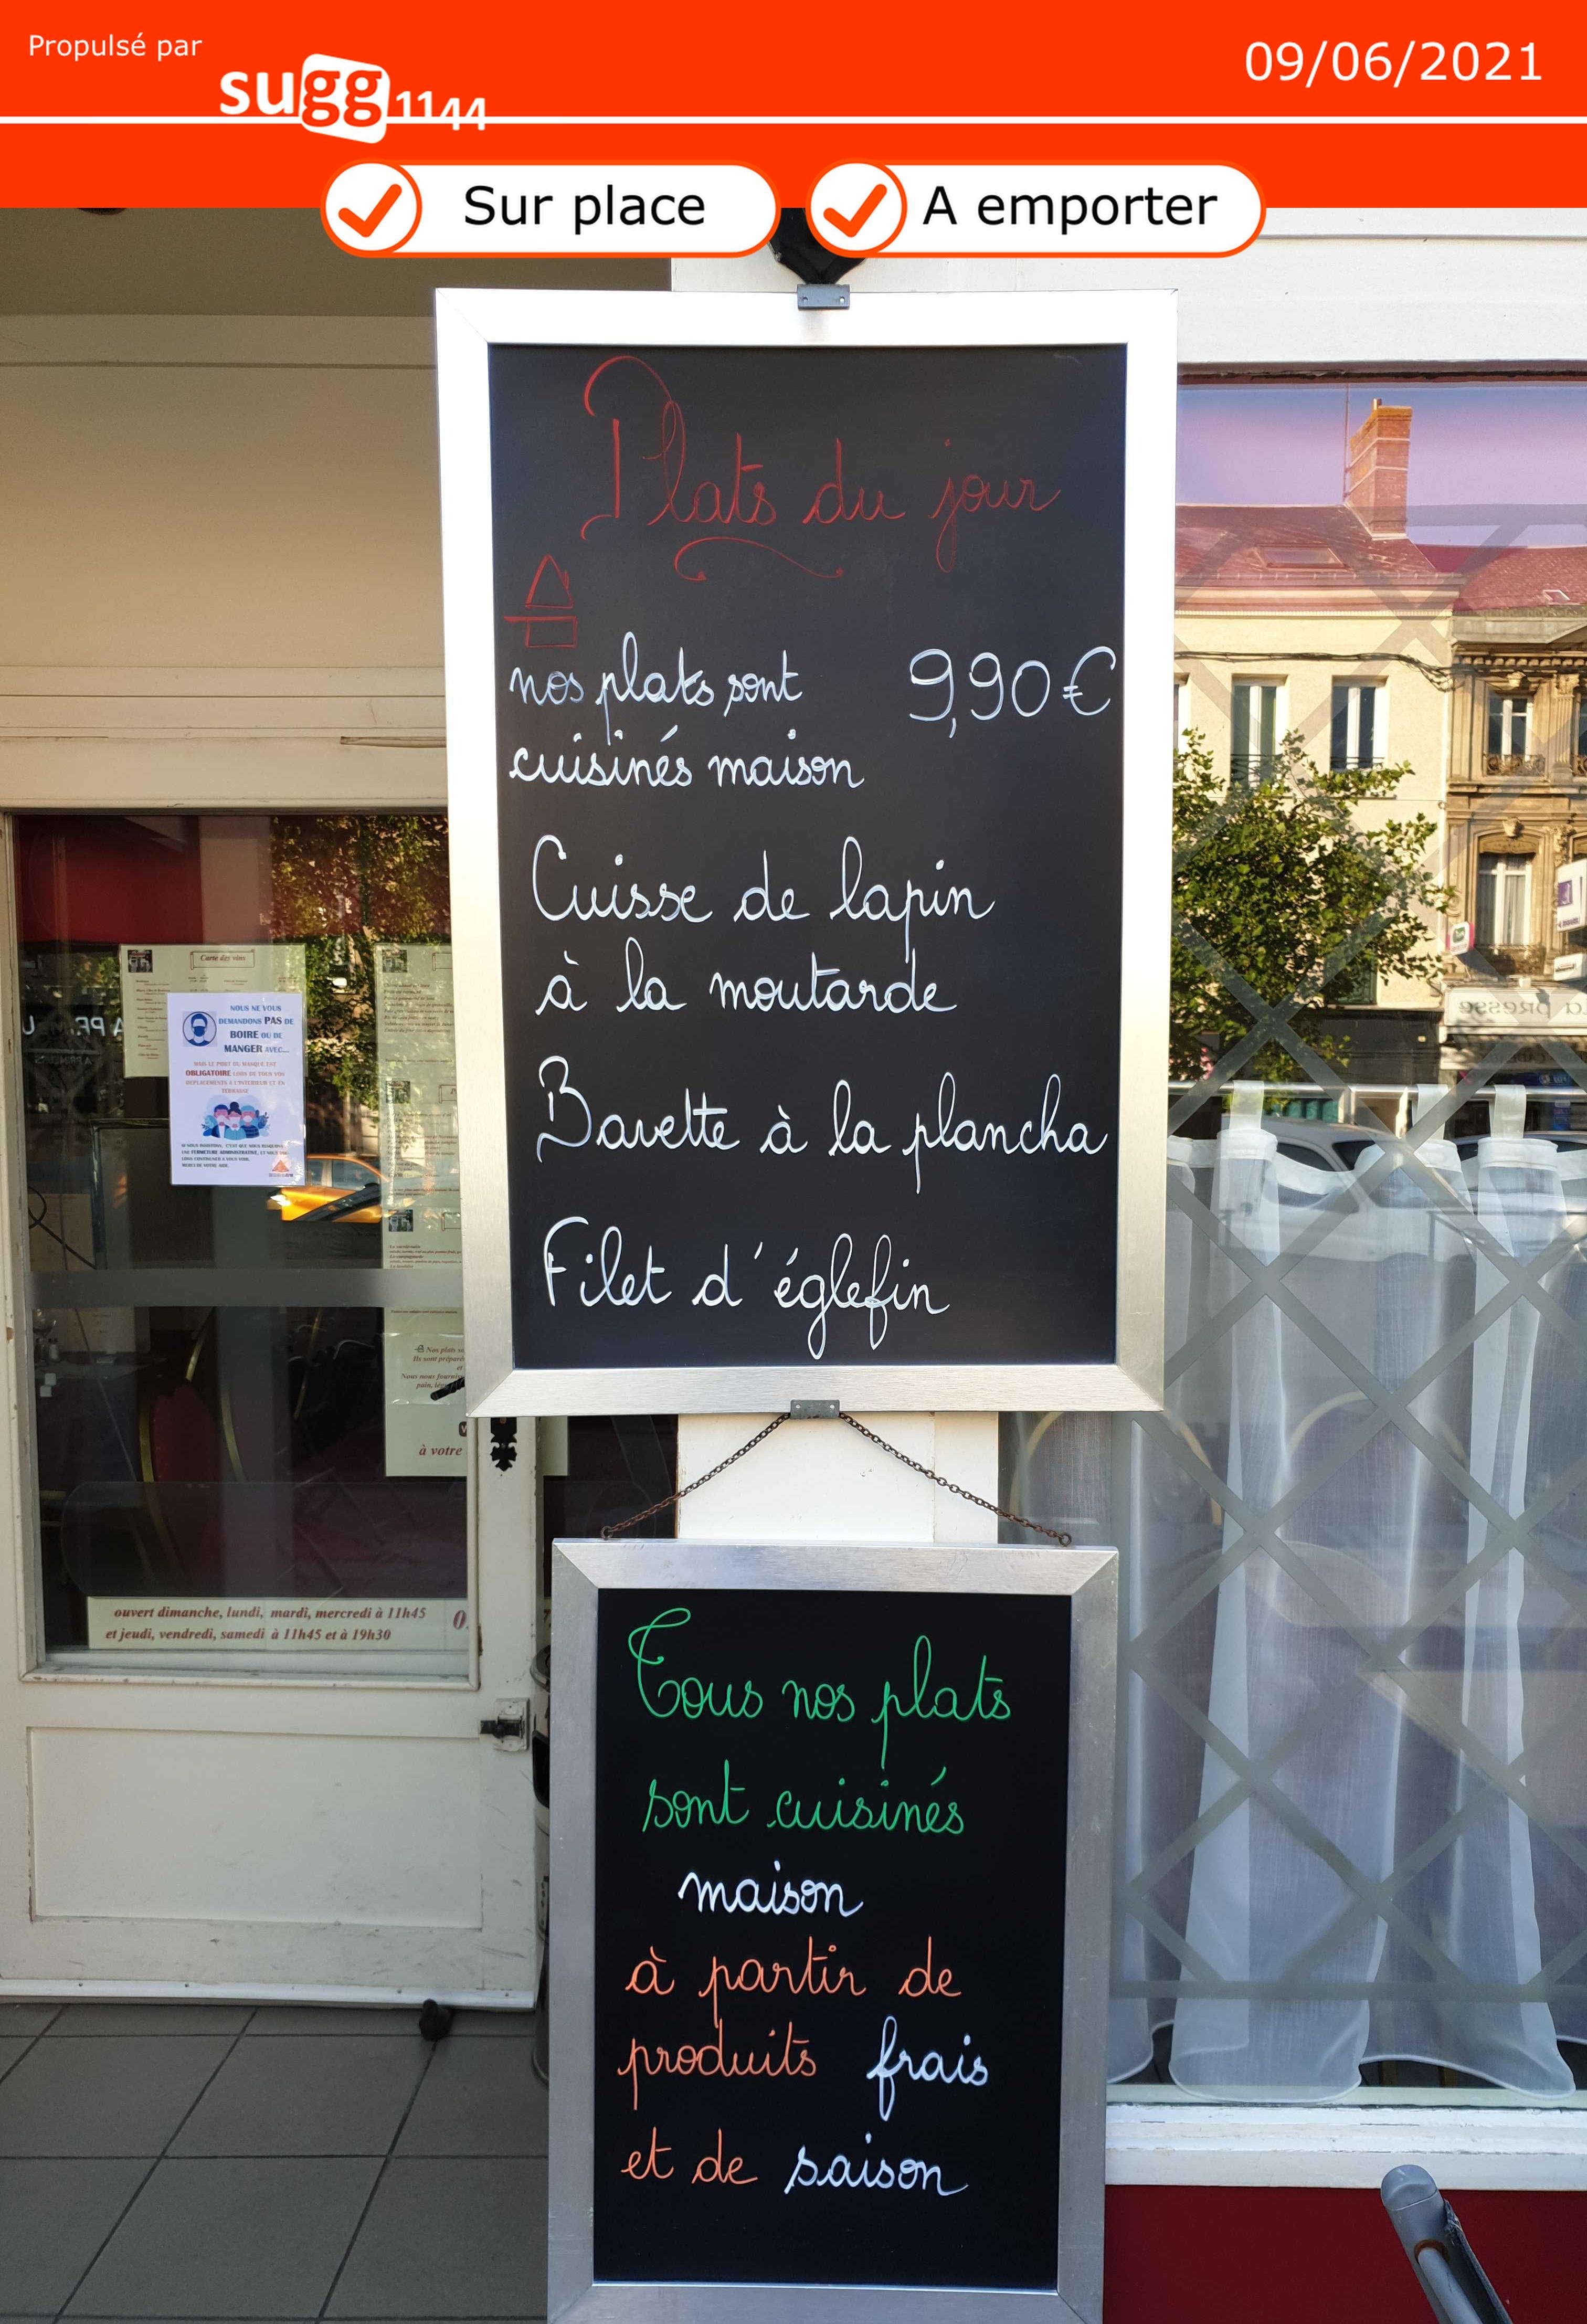 Propulsé par
sugg1144
09/06/2021
Sur place
A emporter
Plats du jour
nos plats sont 9,90€
cuisinés maison
Cuisse de lapin
à la moutarde
Bavette à la plancha
Filet d'églefin
Carte des vins
NOUS NE VOUS
DEMANDONS PAS DE
BOIRE OU DE
MANGER AVEC...
MAIS LE PORT DU MASQUE EST
OBLIGATOIRE LORS DE TOUS VOS
DEPLACEMENTS A L'INTERIEUR ET EN
TERRASSE
Nos plats
à votre
ouvert dimanche, lundi, mardi, mercredi à 11h45
et jeudi, vendredi, samedi à 11h45 et à 19h30
Tous nos plats
sont cuisinés
maison
à partir de
produits frais
et de saison